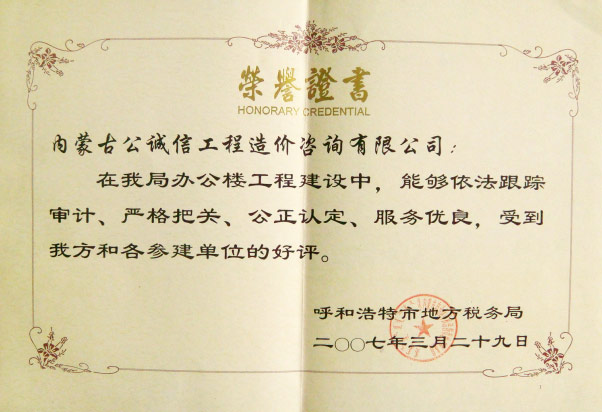 榮譽證書
HONORARY CREDENTIAL
内蒙古公诚信工程造价咨询有限公司：
在我局办公楼工程建设中，能够依法跟踪
审计、严格把关、公正认定、服务优良，受到
我方和各参建单位的好评。
呼和浩特市地方税务局
二〇〇七年三月二十九日